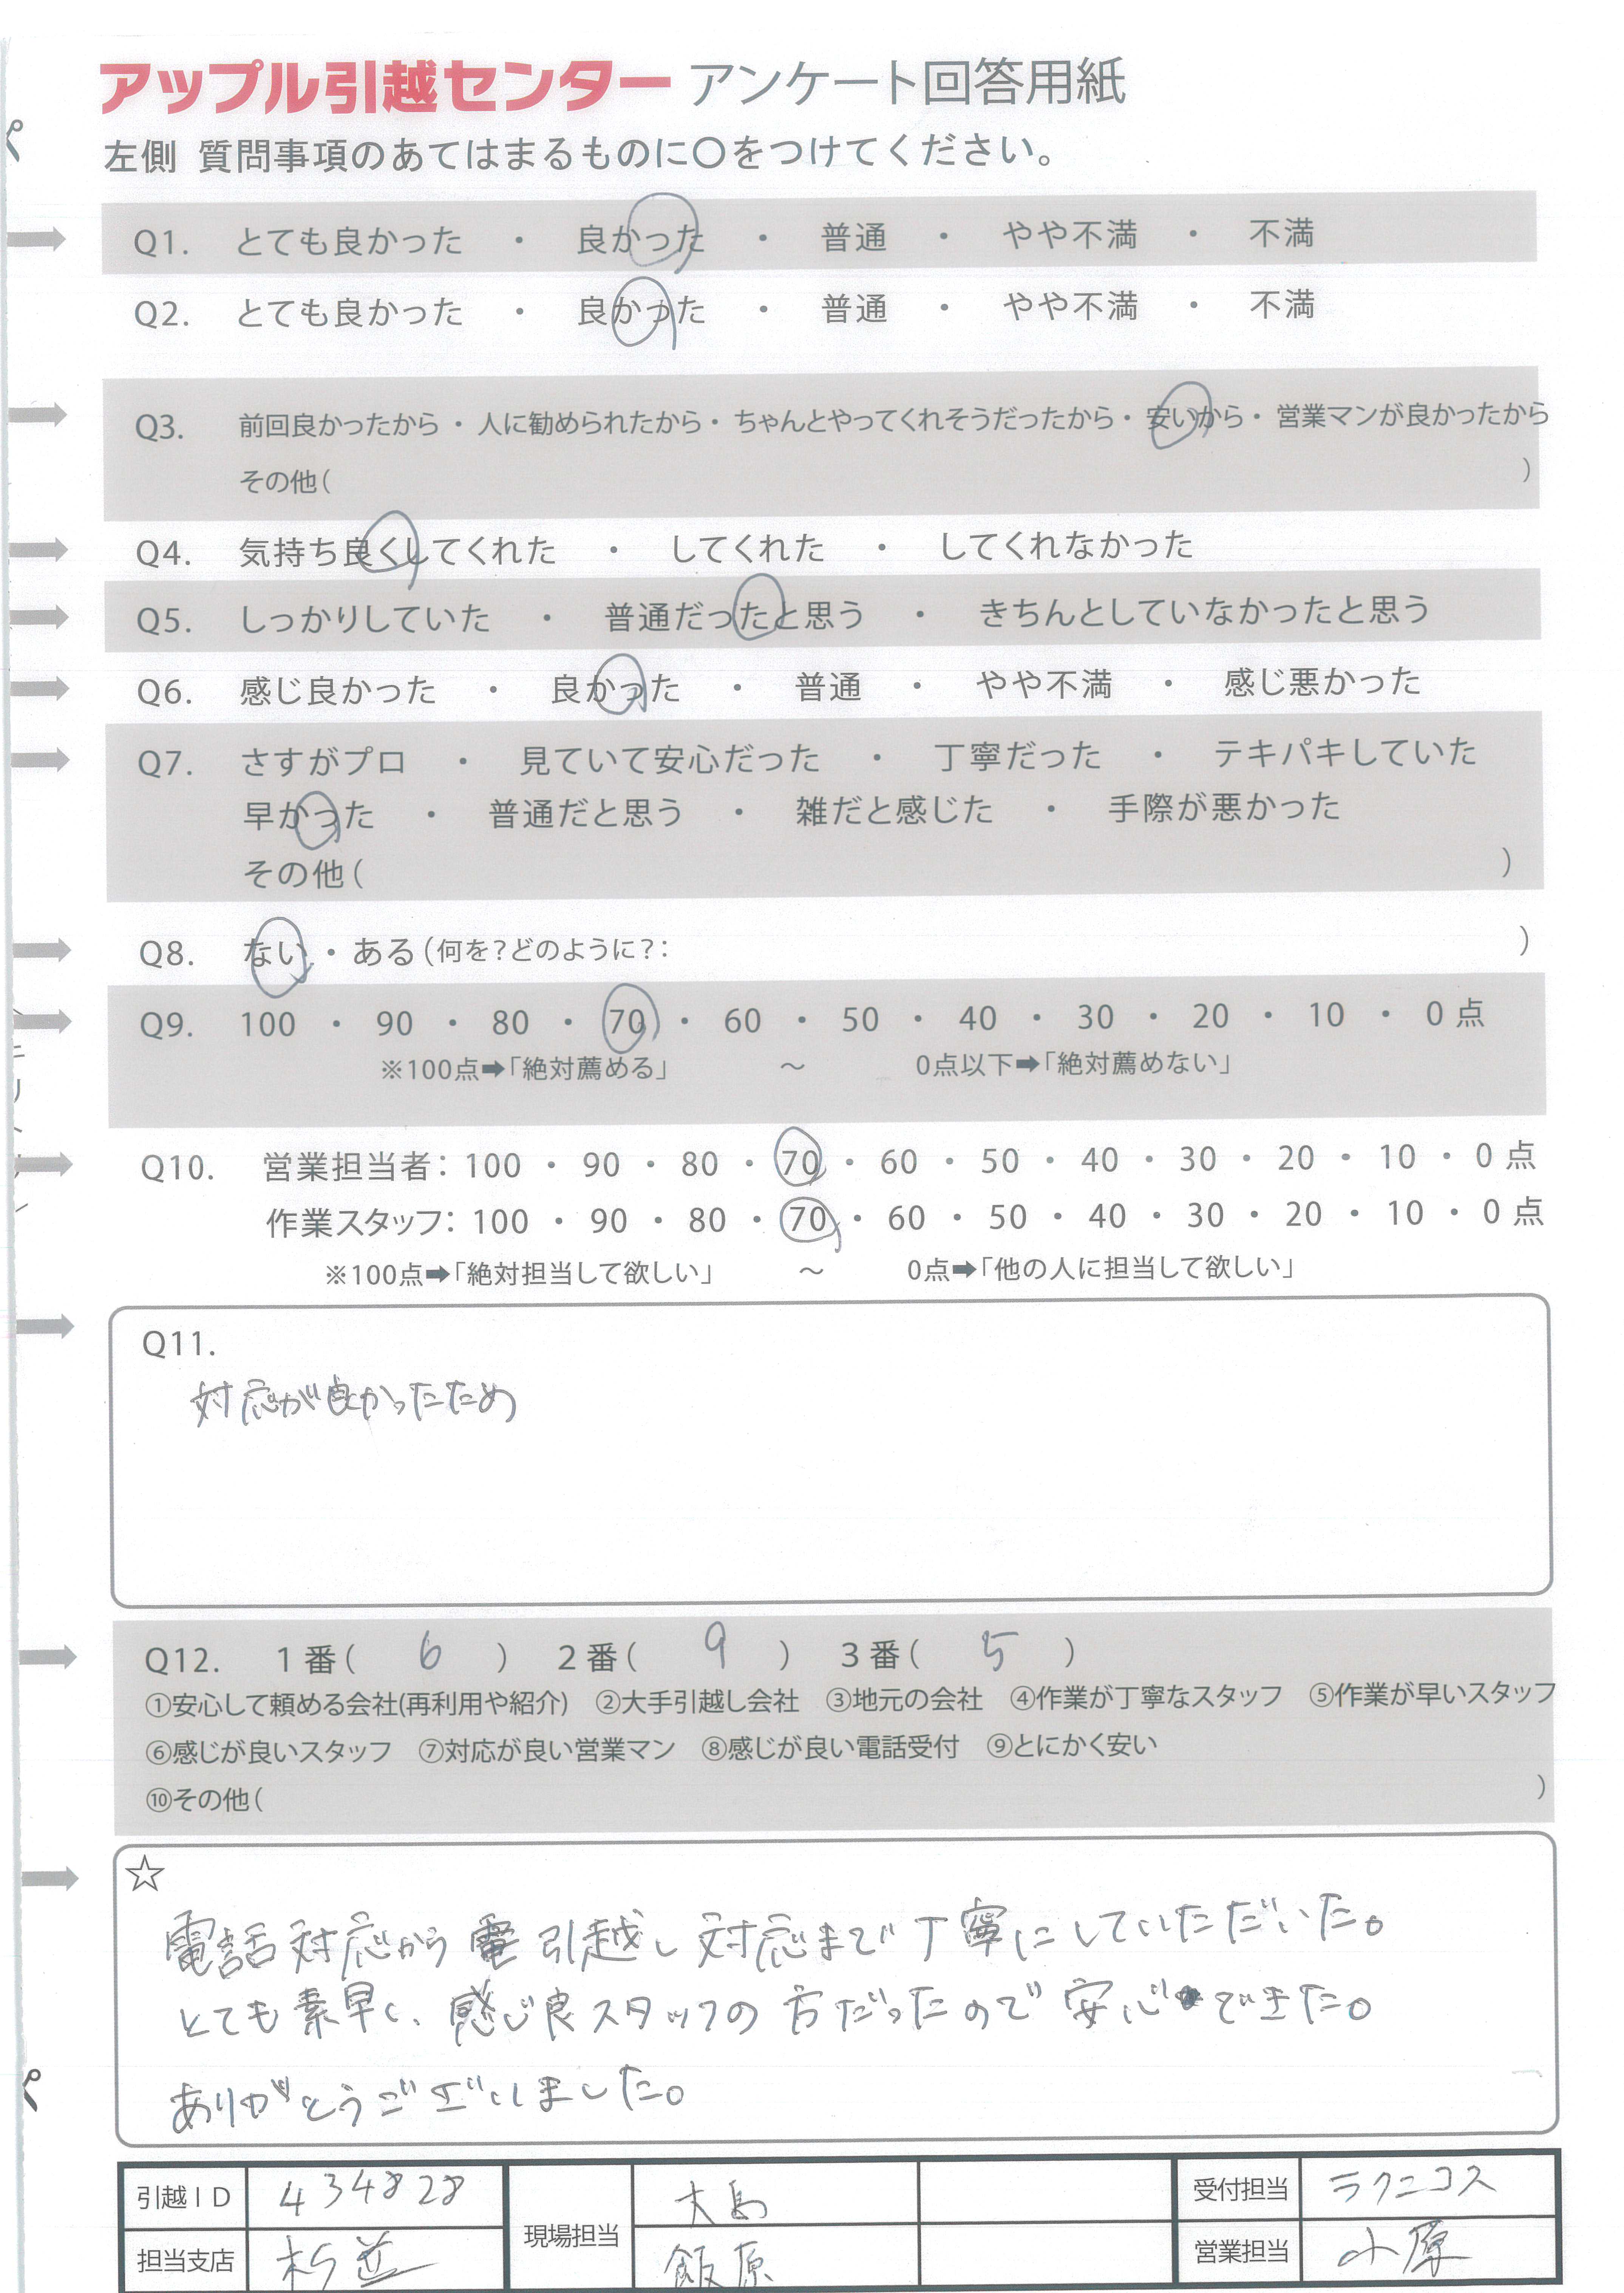 アップル引越センター アンケート回答用紙
左側 質問事項のあてはまるものに〇をつけてください。
Q1. とても良かった ・ 良かった ・ 普通 ・ やや不満 ・ 不満
Q2. とても良かった ・ 良かった ・ 普通 ・ やや不満 ・ 不満
Q3. 前回良かったから ・ 人に勧められたから ・ ちゃんとやってくれそうだったから ・ 安いから ・ 営業マンが良かったから
その他( )
Q4. 気持ち良くしてくれた ・ してくれた ・ してくれなかった
Q5. しっかりしていた ・ 普通だったと思う ・ きちんとしていなかったと思う
Q6. 感じ良かった ・ 良かった ・ 普通 ・ やや不満 ・ 感じ悪かった
Q7. さすがプロ ・ 見ていて安心だった ・ 丁寧だった ・ テキパキしていた
早かった ・ 普通だと思う ・ 雑だと感じた ・ 手際が悪かった
その他( )
Q8. ない ・ ある(何を?どのように?: )
Q9. 100 ・ 90 ・ 80 ・ 70 ・ 60 ・ 50 ・ 40 ・ 30 ・ 20 ・ 10 ・ 0 点
※100点➡「絶対薦める」 ～ 0点以下➡「絶対薦めない」
Q10. 営業担当者: 100 ・ 90 ・ 80 ・ 70 ・ 60 ・ 50 ・ 40 ・ 30 ・ 20 ・ 10 ・ 0 点
作業スタッフ: 100 ・ 90 ・ 80 ・ 70 ・ 60 ・ 50 ・ 40 ・ 30 ・ 20 ・ 10 ・ 0 点
※100点➡「絶対担当して欲しい」 ～ 0点➡「他の人に担当して欲しい」
Q11.
対応が良かったため
Q12. 1番( 6 ) 2番( 9 ) 3番( 5 )
①安心して頼める会社(再利用や紹介) ②大手引越し会社 ③地元の会社 ④作業が丁寧なスタッフ ⑤作業が早いスタッフ
⑥感じが良いスタッフ ⑦対応が良い営業マン ⑧感じが良い電話受付 ⑨とにかく安い
⑩その他( )
☆
電話対応から 引越し対応まで丁寧にしていただいた。
とても素早く、感じ良スタッフの方だったので安心できた。
ありがとうございました。
引越ID 434828 現場担当 大島 受付担当 ラクニコス
担当支店 杉並 飯原 営業担当 小原